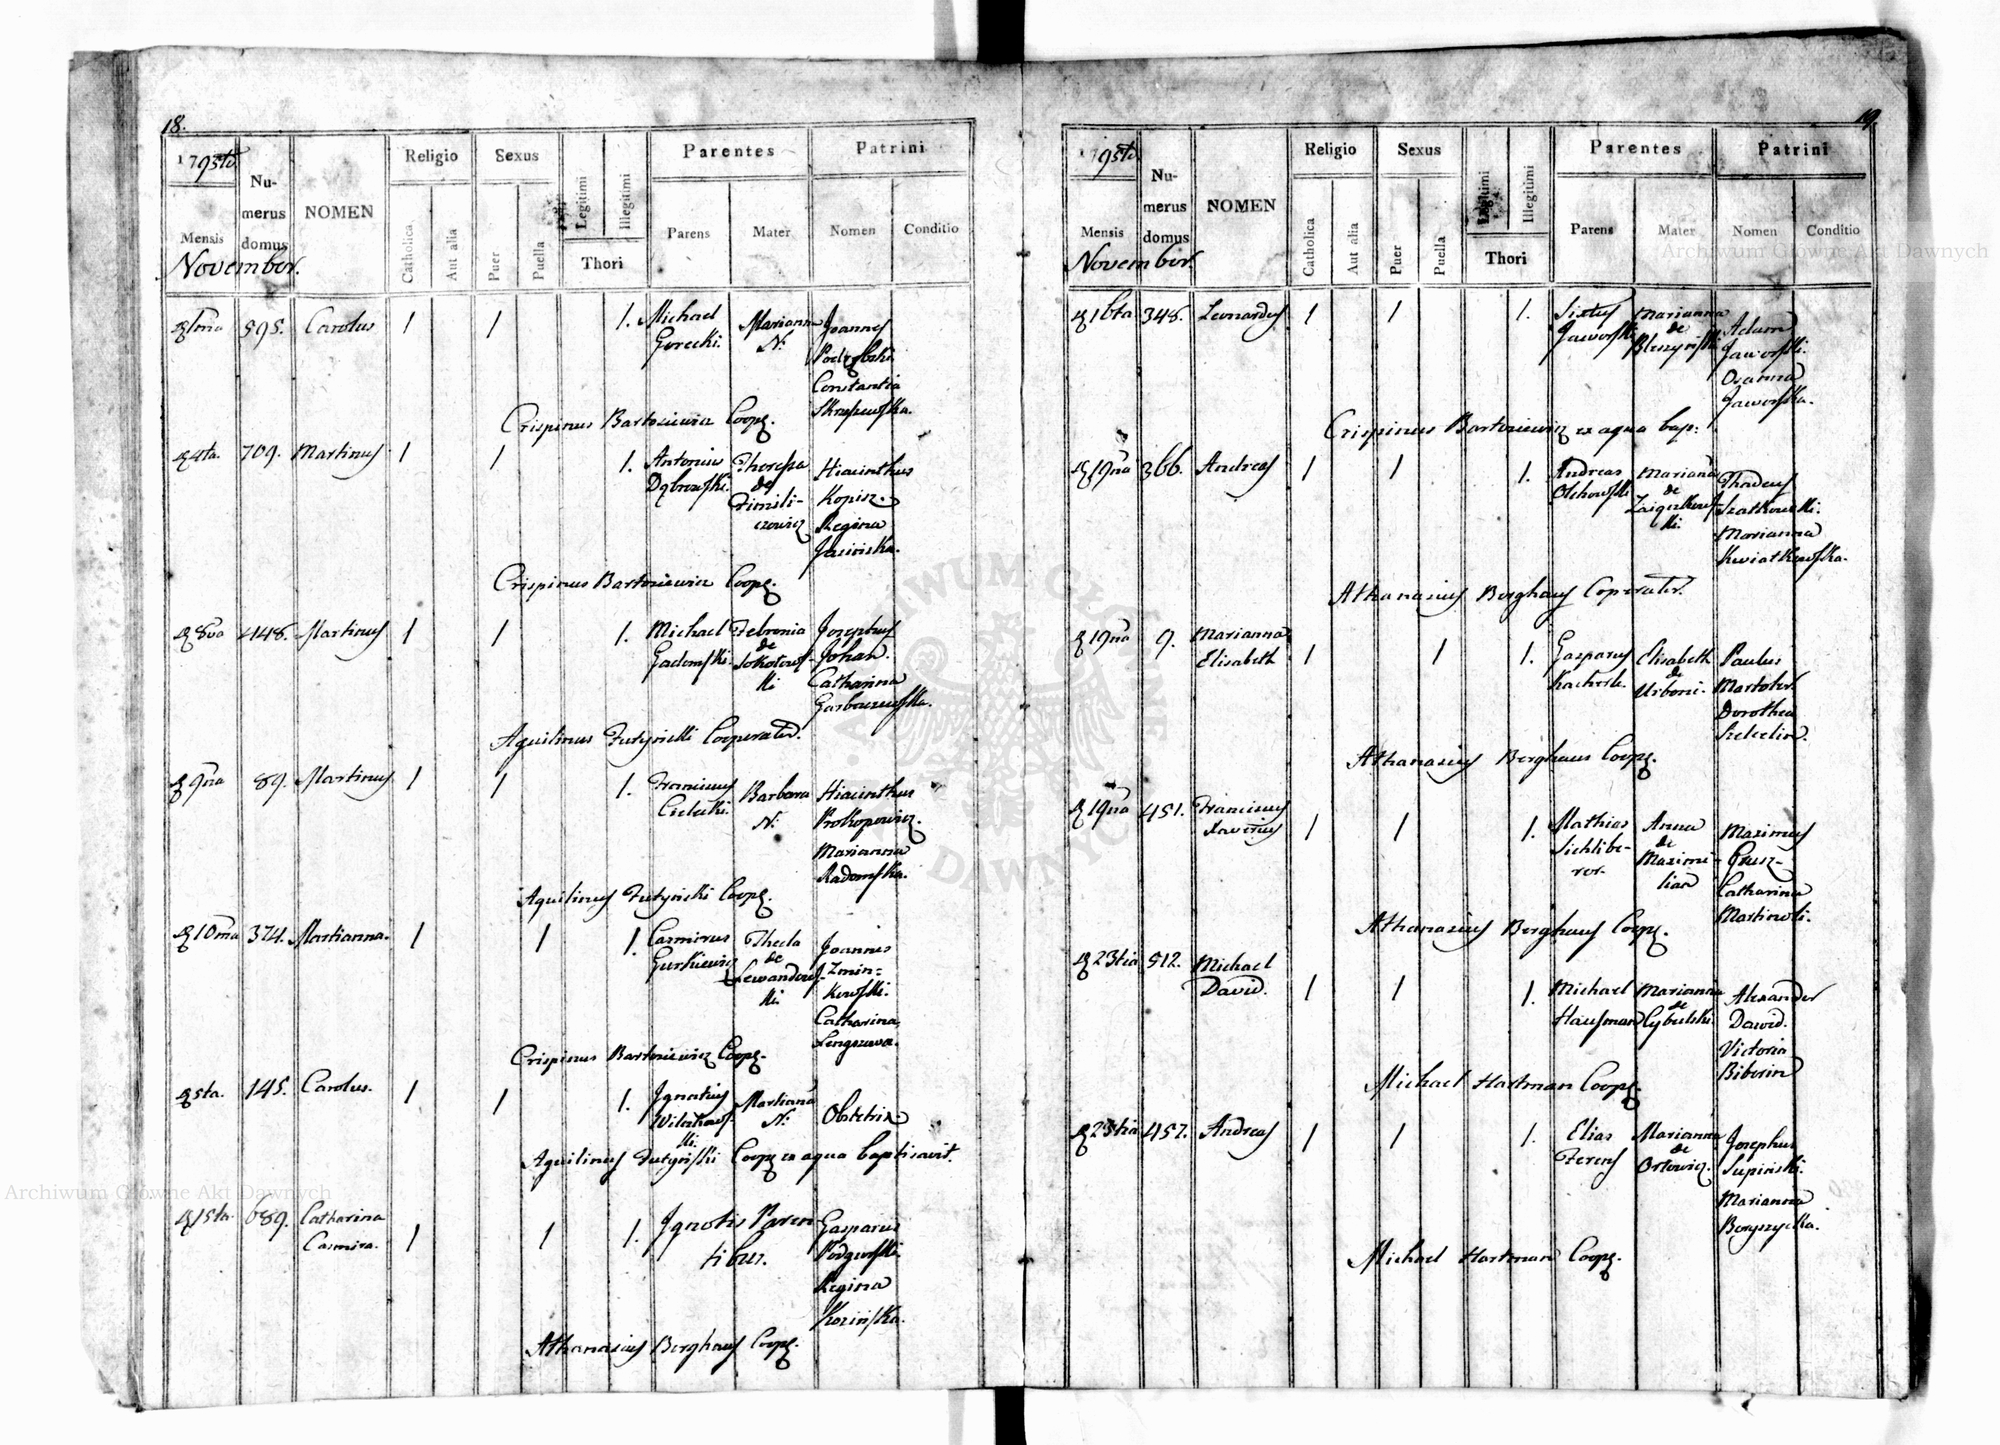 18.
1795to
Mensis
November.
Numerus domus
NOMEN
Religio
Catholica
Aut alia
Sexus
Puer
Puella
Legitimi
Illegitimi
Thori
Parentes
Parens
Mater
Patrini
Nomen
Conditio
1ma 595. Carolus 1 1 1. Michael Marianna Joannes
Gorecki. N:
Constantia
Crispinus Bartosiewicz Coop.
4ta. 709. Martinus 1 1 1. Antonius Theressa Hiacinthus
Dąbrowski. de Kopisz.
Regina
Jasinska.
Crispinus Bartosiewicz Coop.
8va 448. Martinus 1 1 1. Michael Febronia Josephus
Gadomski. de Johan.
Sokołowski Catharina
Garbaczewska.
Aquilinus Futyński Cooperator.
9na 89. Martinus 1 1 1. Franciscus Barbara Hiacinthus
Cielecki. N: Prokopowicz.
Marianna
Radomska.
Aquilinus Futyński Coop.
10ma 374. Martianna. 1 1 1. Casmirus Thecla Joannes
Gurkiewicz de Zmin=
Lewandowski kowski.
Catharina
Crispinus Bartosiewicz Coop.
5ta. 145. Carolus. 1 1 1. Ignatius Martiana Obstetrix
N:
Aquilinus Futyński Coop ex aqua baptisavit.
15ta. 689. Catharina 1 1 1. Ignotis Paren- Gasparus
Casmira. tibus.
Regina
Kozinska.
Athanasius Berghaus Coop.
19.
1795to
Mensis
November.
Numerus domus
NOMEN
Religio
Catholica
Aut alia
Sexus
Puer
Puella
Legitimi
Illegitimi
Thori
Parentes
Parens
Mater
Patrini
Nomen
Conditio
16ta 348. Leonardus 1 1 1. Sixtus Marianna Adam
Jaworski. de Jaworski.
Bleszynski Osanna
Jaworska.
Crispinus Bartosiewicz ex aqua bap:
19na 366. Andreas 1 1 1. Andreas Marianna Thadeus
Olchowski de Szatkowski.
Marianna
Kwiatkowska.
Athanasius Berghaus Coperator.
19na 9. Marianna 1 1 1. Gasparus Elisabeth Paulus
Elisabeth de
Urbani. Dorothea
Athanasius Berghaus Coop.
19na 451. Franciscus 1 1 1. Mathias Anna Maximus
Xaverius de
Maximi-
lian Catharina
Athanasius Berghaus Coop.
23tia 512. Michael 1 1 1. Michael Marianna Alexander
David. Hausman de Dawid.
Cybulski. Victoria
Biberin
Michael Hartman Coop.
23tia 457. Andreas 1 1 1. Elias Marianna Josephus
Ferens de Supiński.
Orłowicz. Marianna
Michael Hartman Coop.
Archiwum Główne Akt Dawnych
Archiwum Główne Akt Dawnych
ARCHIWUM GŁÓWNE AKT DAWNYCH